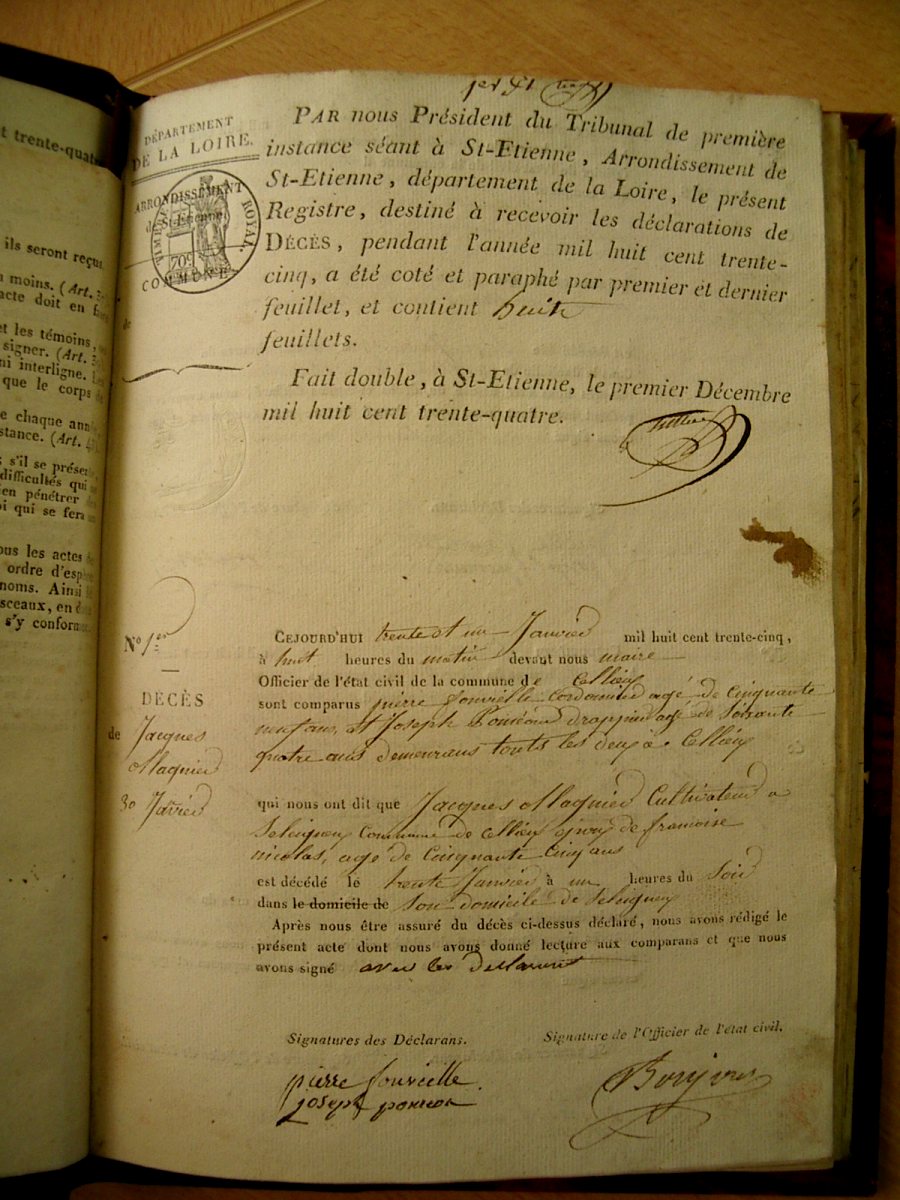 t trente-quatre
ils seront reçus
moins. (Art.
acte doit en
et les témoins,
signer. (Art.
ni interligne.
que le corps de
e chaque ann
stance. (Art.
s'il se prése
difficultés qui
en pénétrer
i qui se fera
ous les actes
ordre d'esp
noms. Ainsi
sceaux, en d
s'y conformer
DÉPARTEMENT
DE LA LOIRE.
ARRONDISSEMENT
de St-Etienne
TIMBRE ROYAL
70c
COMMUNE
de
PAR nous Président du Tribunal de première
instance séant à St-Etienne, Arrondissement de
St-Etienne, département de la Loire, le présent
Registre, destiné à recevoir les déclarations de
DÉCÈS, pendant l'année mil huit cent trente-
cinq, a été coté et paraphé par premier et dernier
feuillet, et contient huit
feuillets.
Fait double, à St-Etienne, le premier Décembre
mil huit cent trente-quatre.
No 1er
DÉCÈS
de Jacques
Magnier
30 Janvier
CEJOURD'HUI trente et un Janvier mil huit cent trente-cinq,
à huit heures du matin devant nous maire
Officier de l'état civil de la commune de Cellieu
sont comparus pierre fonvielle cordonnier agé de Cinquante
neuf ans, et Joseph drappier agé de soixante
quatre ans demeurans touts les deux à Cellieu
qui nous ont dit que Jacques Magnier Cultivateur a
Commune de Cellieu epoux de francoise
nicolas, age de Cinquante Cinq ans
est décédé le trente Janvier à un heures du Soir
dans le domicile de son domicile de
Après nous être assuré du décès ci-dessus déclaré, nous avons rédigé le
présent acte dont nous avons donné lecture aux comparans et que nous
avons signé avec les declarant
Signatures des Déclarans.
Signature de l'Officier de l'état civil.
pierre fonvielle
joseph